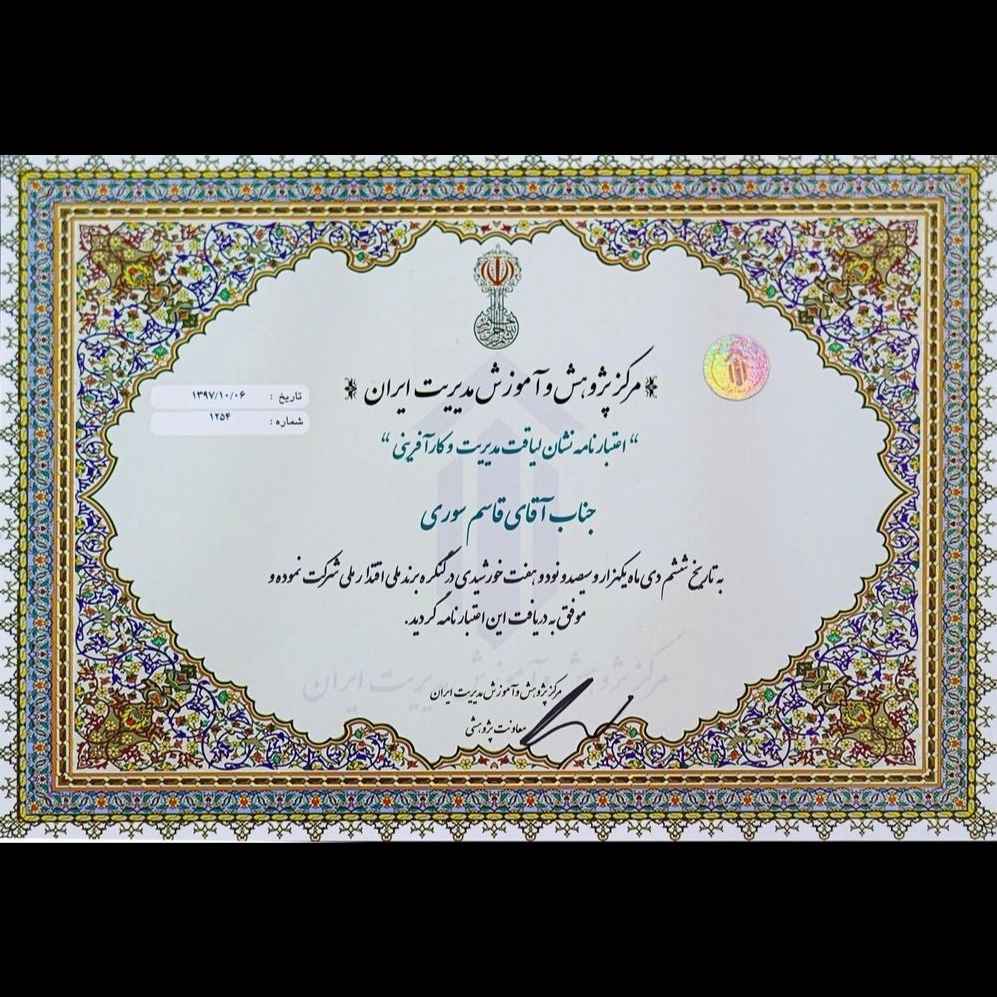 مرکز پژوهش و آموزش مدیریت ایران
تاریخ : ۱۳۹۷/۱۰/۰۶
شماره : ۱۲۵۴
“ اعتبارنامه نشان لیاقت مدیریت و کارآفرینی “
جناب آقای قاسم سوری
به تاریخ ششم دی ماه یکهزار و سیصد و نود و هفت خورشیدی در کنگره برند ملی اقتدار ملی شرکت نموده و
موفق به دریافت این اعتبارنامه گردید.
مرکز پژوهش و آموزش مدیریت ایران
مرکز پژوهش و آموزش مدیریت ایران
معاونت پژوهشی